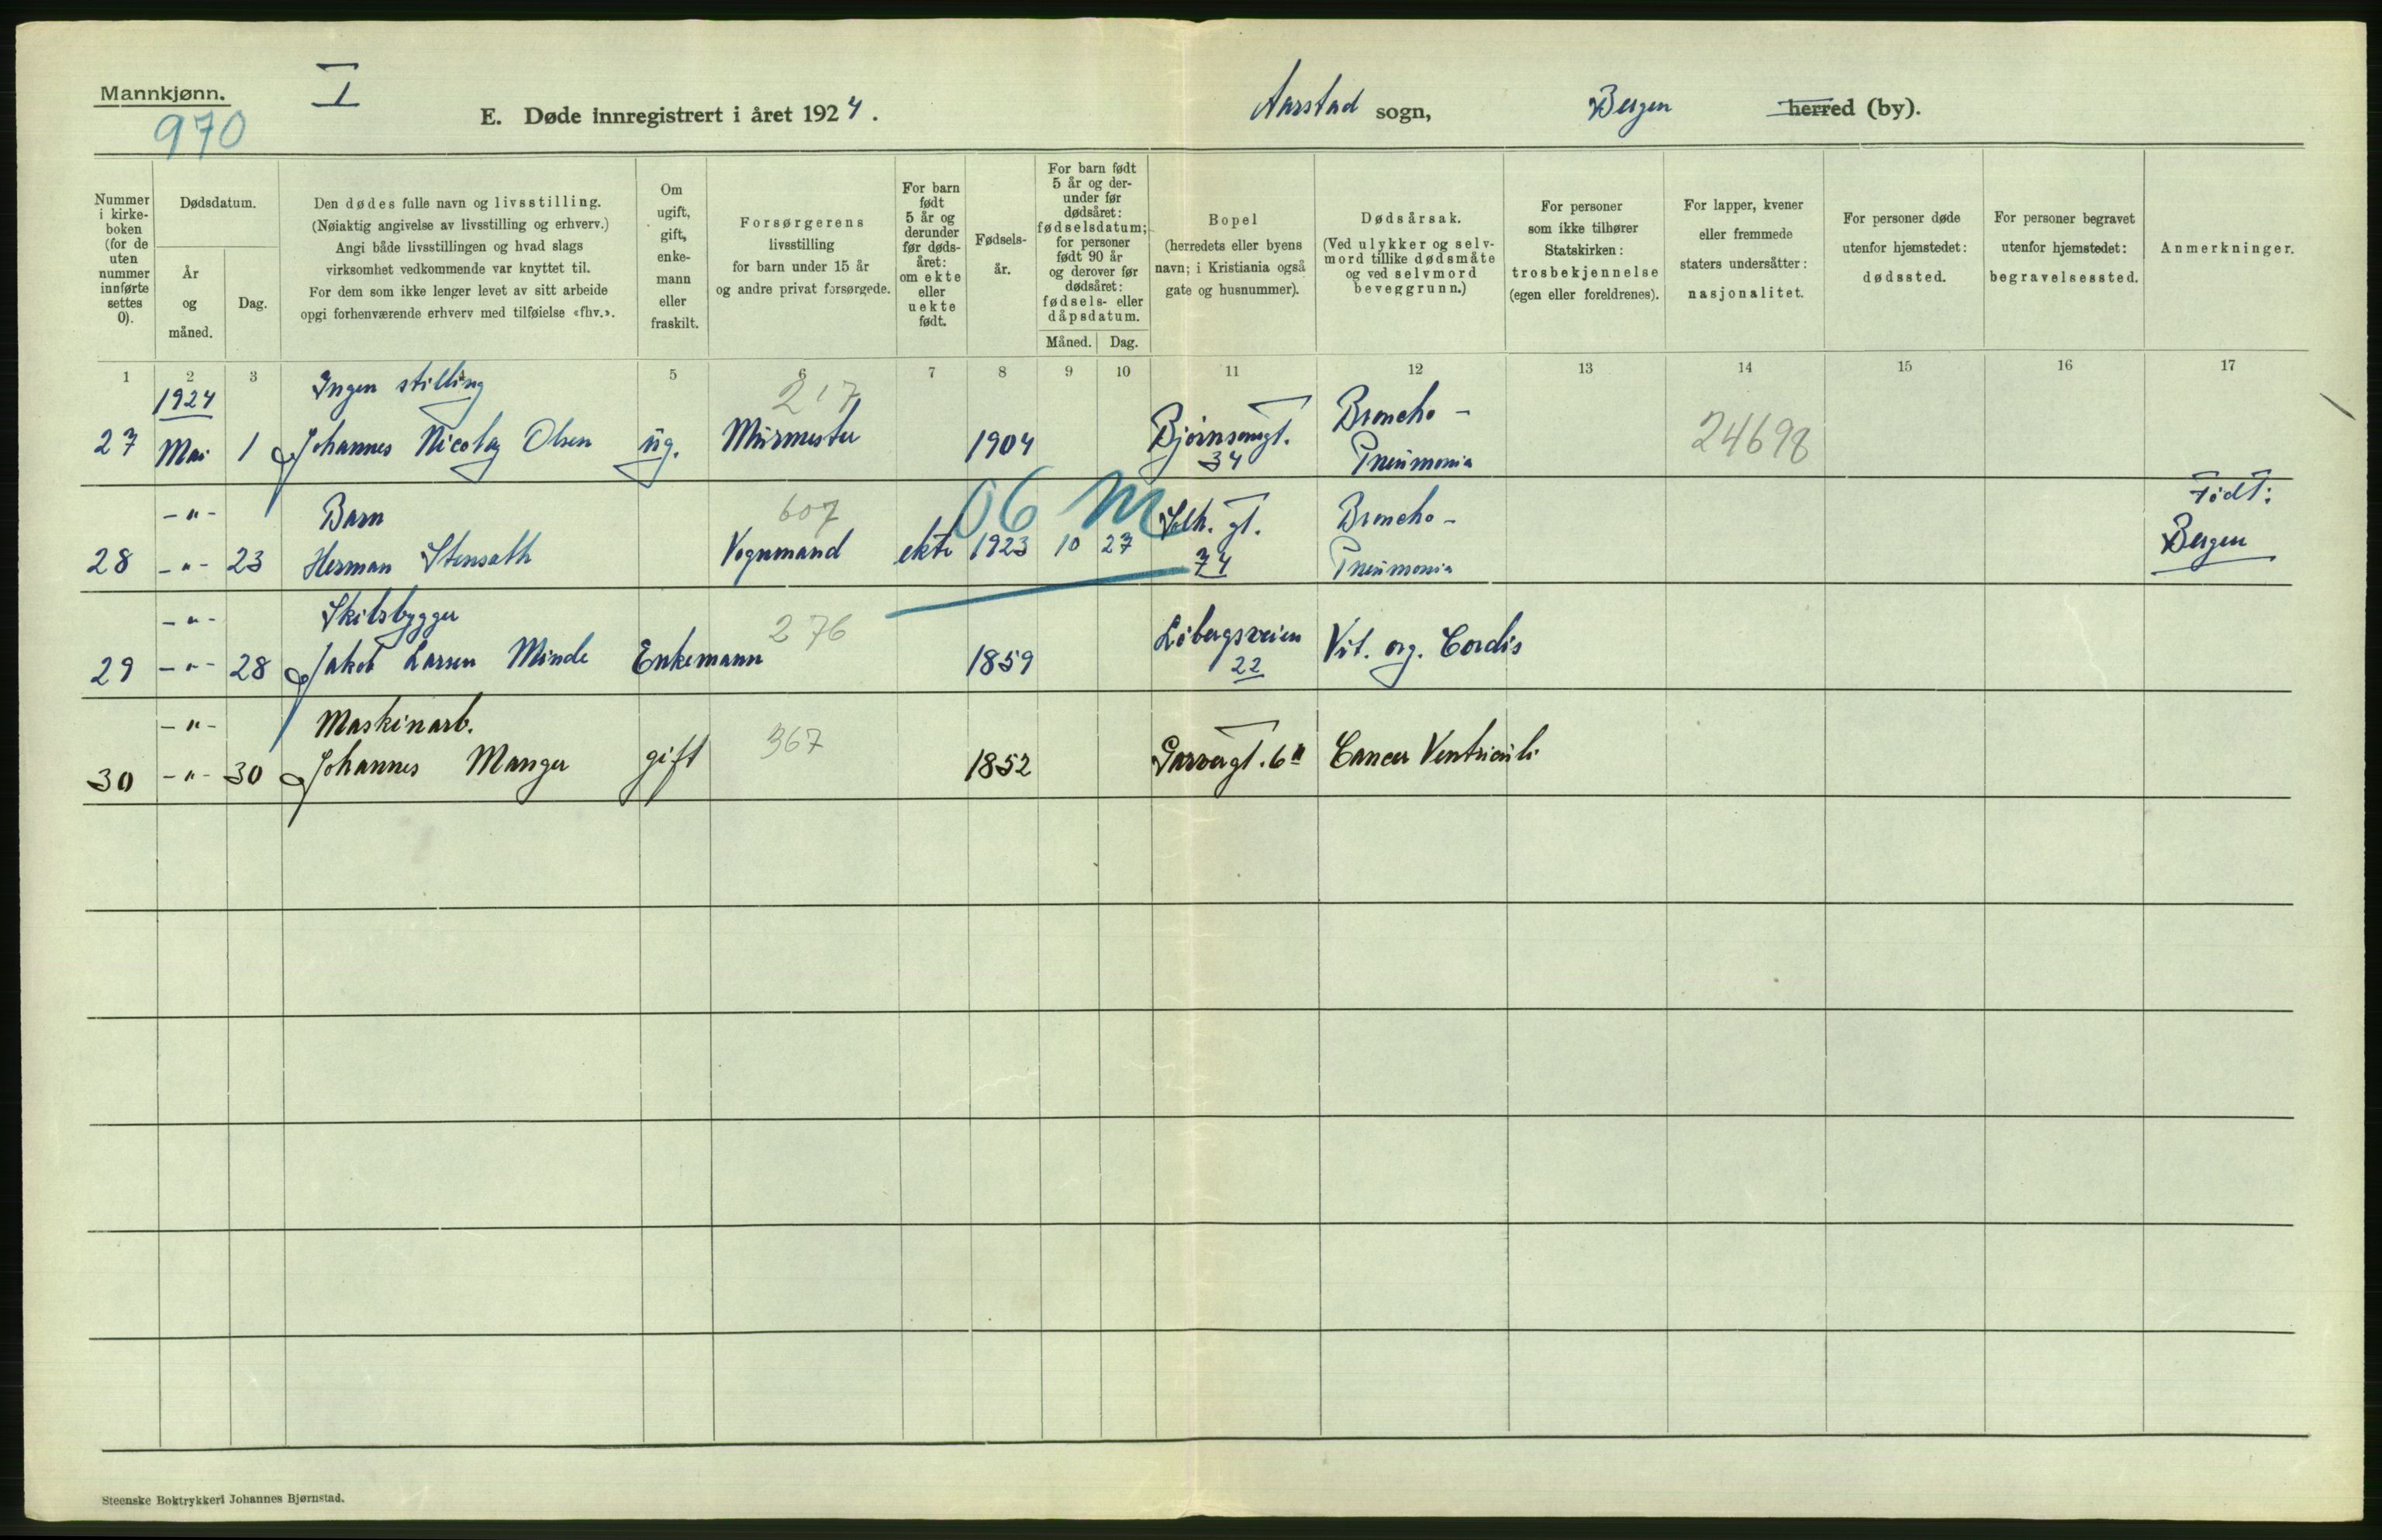 Mannkjønn.
I
970
E. Døde innregistrert i året 1924.
Aarstad sogn,
Bergen herred (by).
Nummer i kirke-boken (for de uten nummer innførte settes 0).
Dødsdatum.
År og måned.
Dag.
Den dødes fulle navn og livsstilling.
(Nøiaktig angivelse av livsstilling og erhverv.)
Angi både livsstillingen og hvad slags
virksomhet vedkommende var knyttet til.
For dem som ikke lenger levet av sitt arbeide
opgi forhenværende erhverv med tilføielse «fhv.».
Om ugift, gift, enke-mann eller fraskilt.
Forsørgerens
livsstilling
for barn under 15 år
og andre privat forsørgede.
For barn født 5 år og derunder før døds-året: om ekte eller uekte født.
Fødsels-år.
For barn født 5 år og der-under før dødsåret: fødselsdatum; for personer født 90 år og derover før dødsåret: fødsels- eller dåpsdatum.
Måned.
Dag.
Bopel
(herredets eller byens
navn; i Kristiania også
gate og husnummer).
Dødsårsak.
(Ved ulykker og selv-
mord tillike dødsmåte
og ved selvmord
beveggrunn.)
For personer
som ikke tilhører
Statskirken:
trosbekjennelse
(egen eller foreldrenes).
For lapper, kvener
eller fremmede
staters undersåtter:
nasjonalitet.
For personer døde
utenfor hjemstedet:
dødssted.
For personer begravet
utenfor hjemstedet:
begravelsessted.
Anmerkninger.
1 2 3 4 5 6 7 8 9 10 11 12 13 14 15 16 17
1924 Ingen stilling 217 Bjørnsonsgt. Broncho-
27 Mai 1 Johannes Nicolay Olsen ug. Murmester 1904 34 Pneumonia 24698
-"- Barn 607 06 M Solh. gt. Broncho- Født:
28 -"- 23 Herman Stensath Vognmand ekte 1923 10 27 74 Pneumonia Bergen
-"- Skibsbygger 276 Løbergsveien Vit. org. Cordis
29 -"- 28 Jakob Larsen Minde Enkemann 1859 22
-"- Maskinarb. 367
30 -"- 30 Johannes Manger gift 1852 Garvergt. 6 Cancer Ventriculi
Steenske Boktrykkeri Johannes Bjørnstad.